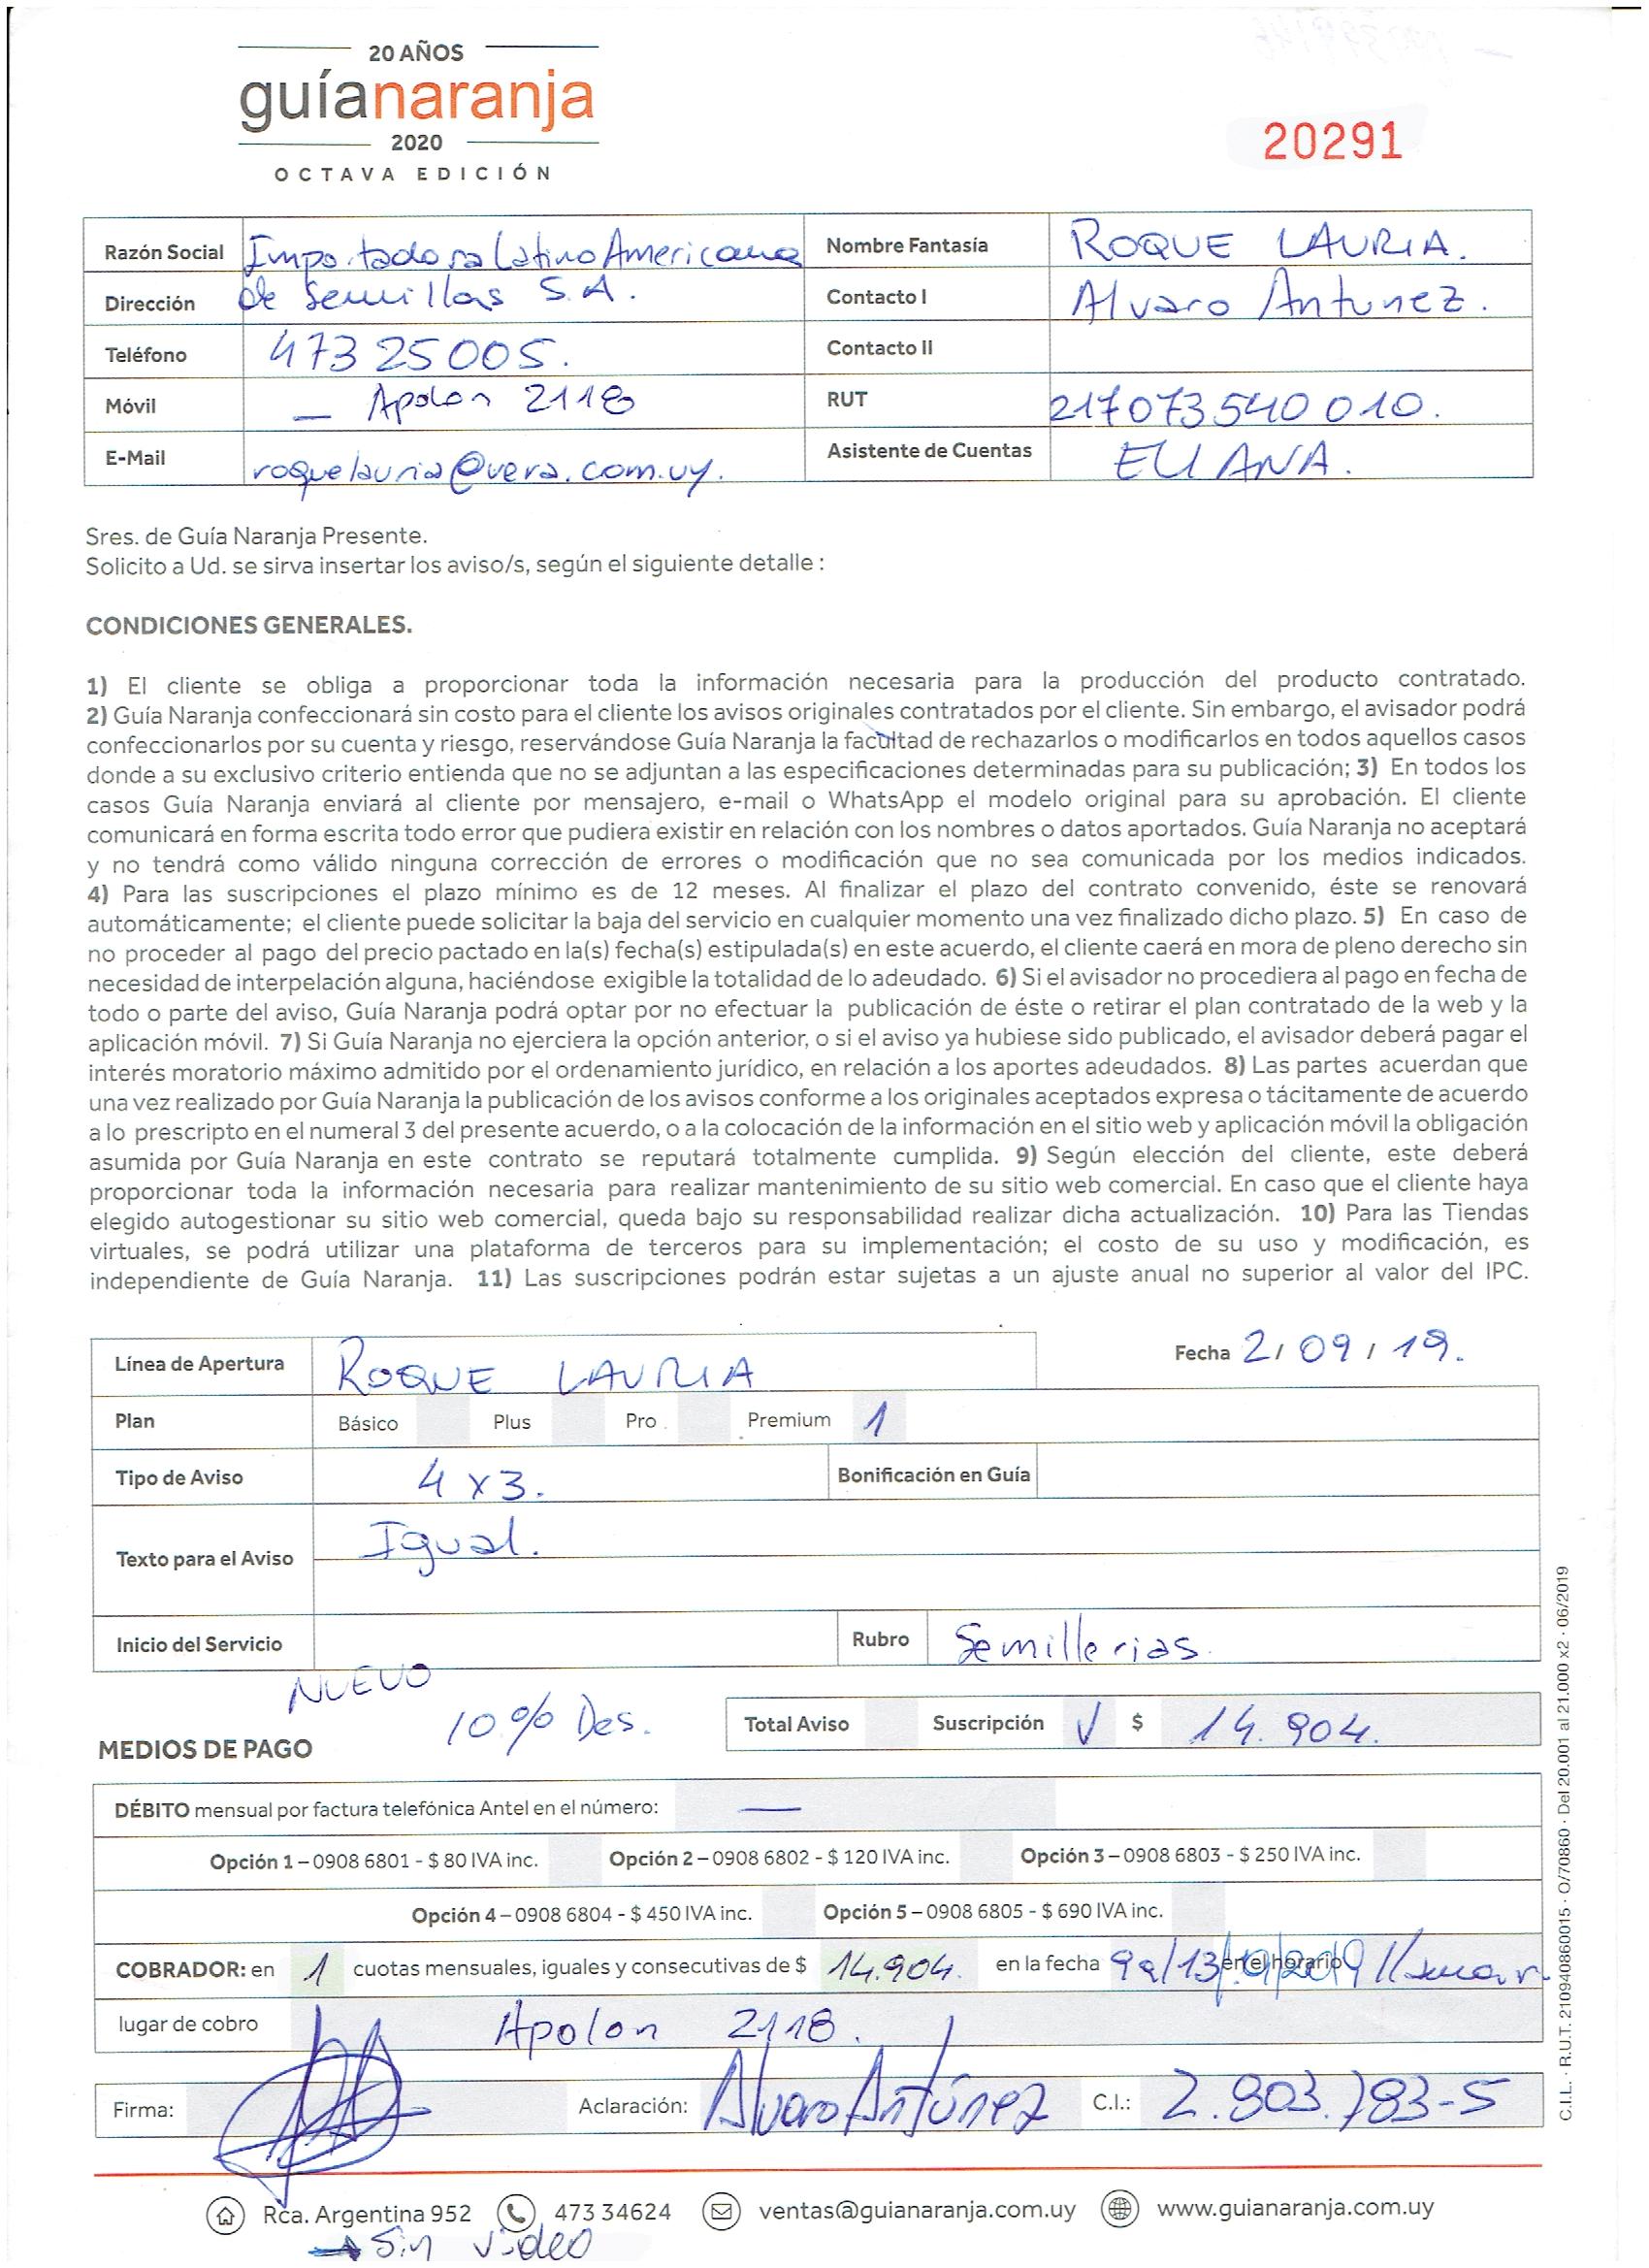 20 AÑOS
guíanaranja
2020
OCTAVA EDICIÓN
20291
Razón Social Importadora LatinoAmericana Nombre Fantasía ROQUE LAURIA.
Dirección de Semillas S.A. Contacto I Alvaro Antunez.
Teléfono 473 25005. Contacto II
Móvil — Apolon 2118 RUT 217073540010.
E-Mail roquelauria@vera.com.uy. Asistente de Cuentas ELIANA.
Sres. de Guía Naranja Presente.
Solicito a Ud. se sirva insertar los aviso/s, según el siguiente detalle :
CONDICIONES GENERALES.
1) El cliente se obliga a proporcionar toda la información necesaria para la producción del producto contratado.
2) Guía Naranja confeccionará sin costo para el cliente los avisos originales contratados por el cliente. Sin embargo, el avisador podrá
confeccionarlos por su cuenta y riesgo, reservándose Guía Naranja la facultad de rechazarlos o modificarlos en todos aquellos casos
donde a su exclusivo criterio entienda que no se adjuntan a las especificaciones determinadas para su publicación; 3) En todos los
casos Guía Naranja enviará al cliente por mensajero, e-mail o WhatsApp el modelo original para su aprobación. El cliente
comunicará en forma escrita todo error que pudiera existir en relación con los nombres o datos aportados. Guía Naranja no aceptará
y no tendrá como válido ninguna corrección de errores o modificación que no sea comunicada por los medios indicados.
4) Para las suscripciones el plazo mínimo es de 12 meses. Al finalizar el plazo del contrato convenido, éste se renovará
automáticamente; el cliente puede solicitar la baja del servicio en cualquier momento una vez finalizado dicho plazo. 5) En caso de
no proceder al pago del precio pactado en la(s) fecha(s) estipulada(s) en este acuerdo, el cliente caerá en mora de pleno derecho sin
necesidad de interpelación alguna, haciéndose exigible la totalidad de lo adeudado. 6) Si el avisador no procediera al pago en fecha de
todo o parte del aviso, Guía Naranja podrá optar por no efectuar la publicación de éste o retirar el plan contratado de la web y la
aplicación móvil. 7) Si Guía Naranja no ejerciera la opción anterior, o si el aviso ya hubiese sido publicado, el avisador deberá pagar el
interés moratorio máximo admitido por el ordenamiento jurídico, en relación a los aportes adeudados. 8) Las partes acuerdan que
una vez realizado por Guía Naranja la publicación de los avisos conforme a los originales aceptados expresa o tácitamente de acuerdo
a lo prescripto en el numeral 3 del presente acuerdo, o a la colocación de la información en el sitio web y aplicación móvil la obligación
asumida por Guía Naranja en este contrato se reputará totalmente cumplida. 9) Según elección del cliente, este deberá
proporcionar toda la información necesaria para realizar mantenimiento de su sitio web comercial. En caso que el cliente haya
elegido autogestionar su sitio web comercial, queda bajo su responsabilidad realizar dicha actualización. 10) Para las Tiendas
virtuales, se podrá utilizar una plataforma de terceros para su implementación; el costo de su uso y modificación, es
independiente de Guía Naranja. 11) Las suscripciones podrán estar sujetas a un ajuste anual no superior al valor del IPC.
Línea de Apertura ROQUE LAURIA Fecha 2/09/19.
Plan Básico Plus Pro Premium 1
Tipo de Aviso 4 x 3. Bonificación en Guía
Texto para el Aviso Igual.
Inicio del Servicio Rubro Semillerias
NUEVO
10% Des. Total Aviso Suscripción √ $ 14.904.
MEDIOS DE PAGO
DÉBITO mensual por factura telefónica Antel en el número: —
Opción 1 – 0908 6801 - $ 80 IVA inc. Opción 2 – 0908 6802 - $ 120 IVA inc. Opción 3 – 0908 6803 - $ 250 IVA inc.
Opción 4 – 0908 6804 - $ 450 IVA inc. Opción 5 – 0908 6805 - $ 690 IVA inc.
COBRADOR: en 1 cuotas mensuales, iguales y consecutivas de $ 14.904. en la fecha en el horario
lugar de cobro Apolon 2118.
Firma: Aclaración: Alvaro Antúnez C.I.: 2.803.783-5
Rca. Argentina 952 473 34624 ventas@guianaranja.com.uy www.guianaranja.com.uy
→ Sin video
C.I.L. · R.U.T. 210940860015 · O/70860 · Del 20.001 al 21.000 x2 · 06/2019